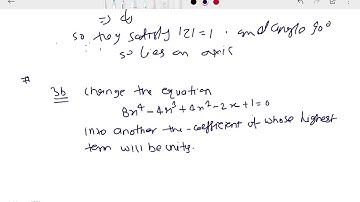 => dy
so they satisfy |z|=1 . and angle 90°
so lies an axis
#
3b change the equation
8x⁴-4x³+6x²-2x+1=0
into another the coefficient of whose highest
term will be unity.